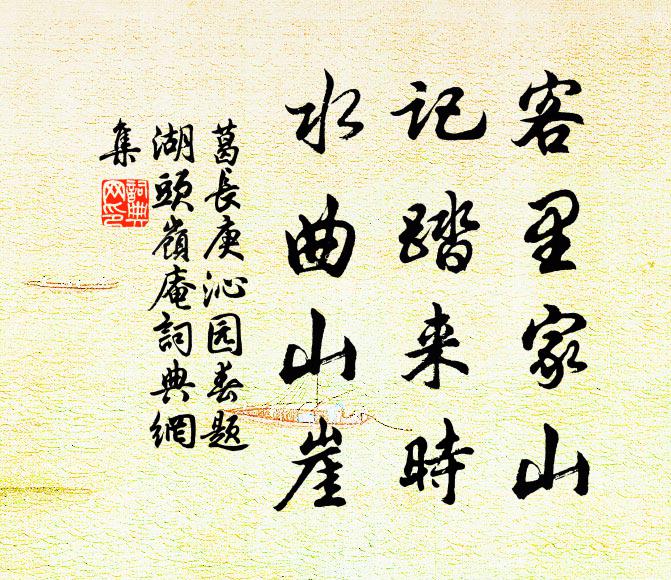 客里家山
记踏来時
水曲山崖
葛長庚沁园春题
湖頭嶺庵詞典網
集
詞典
网印